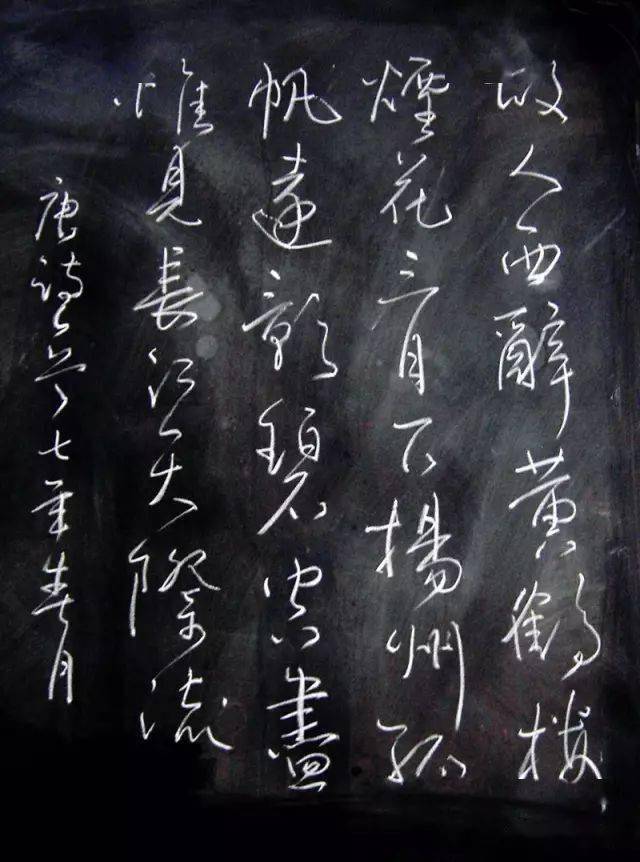 故人西辭黄鶴楼
煙花三月下揚州孤
帆遠影碧空盡
惟見長江天際流
唐詩一首七年春月